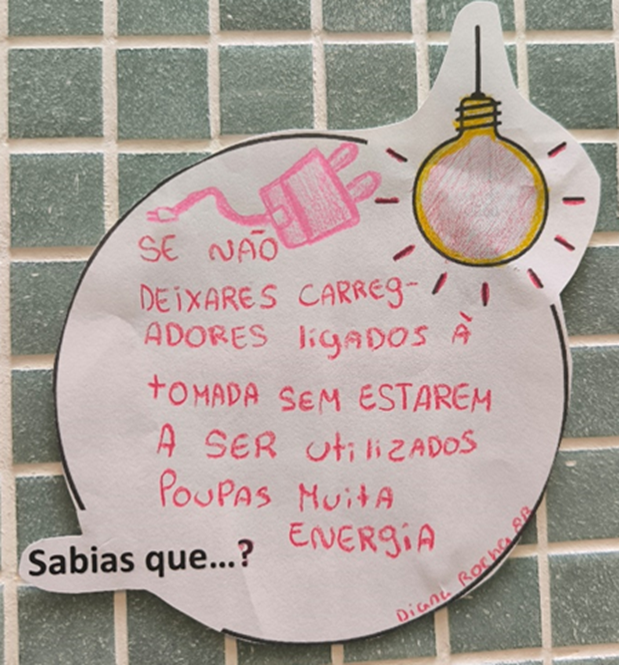 Sabias que...?
SE NÃO
DEIXARES CARREG-
ADORES ligADOS À
tOMADA SEM ESTAREM
A SER UtilizADOS
POUPAS MUitA
ENERgiA
Diana Rocha 8B